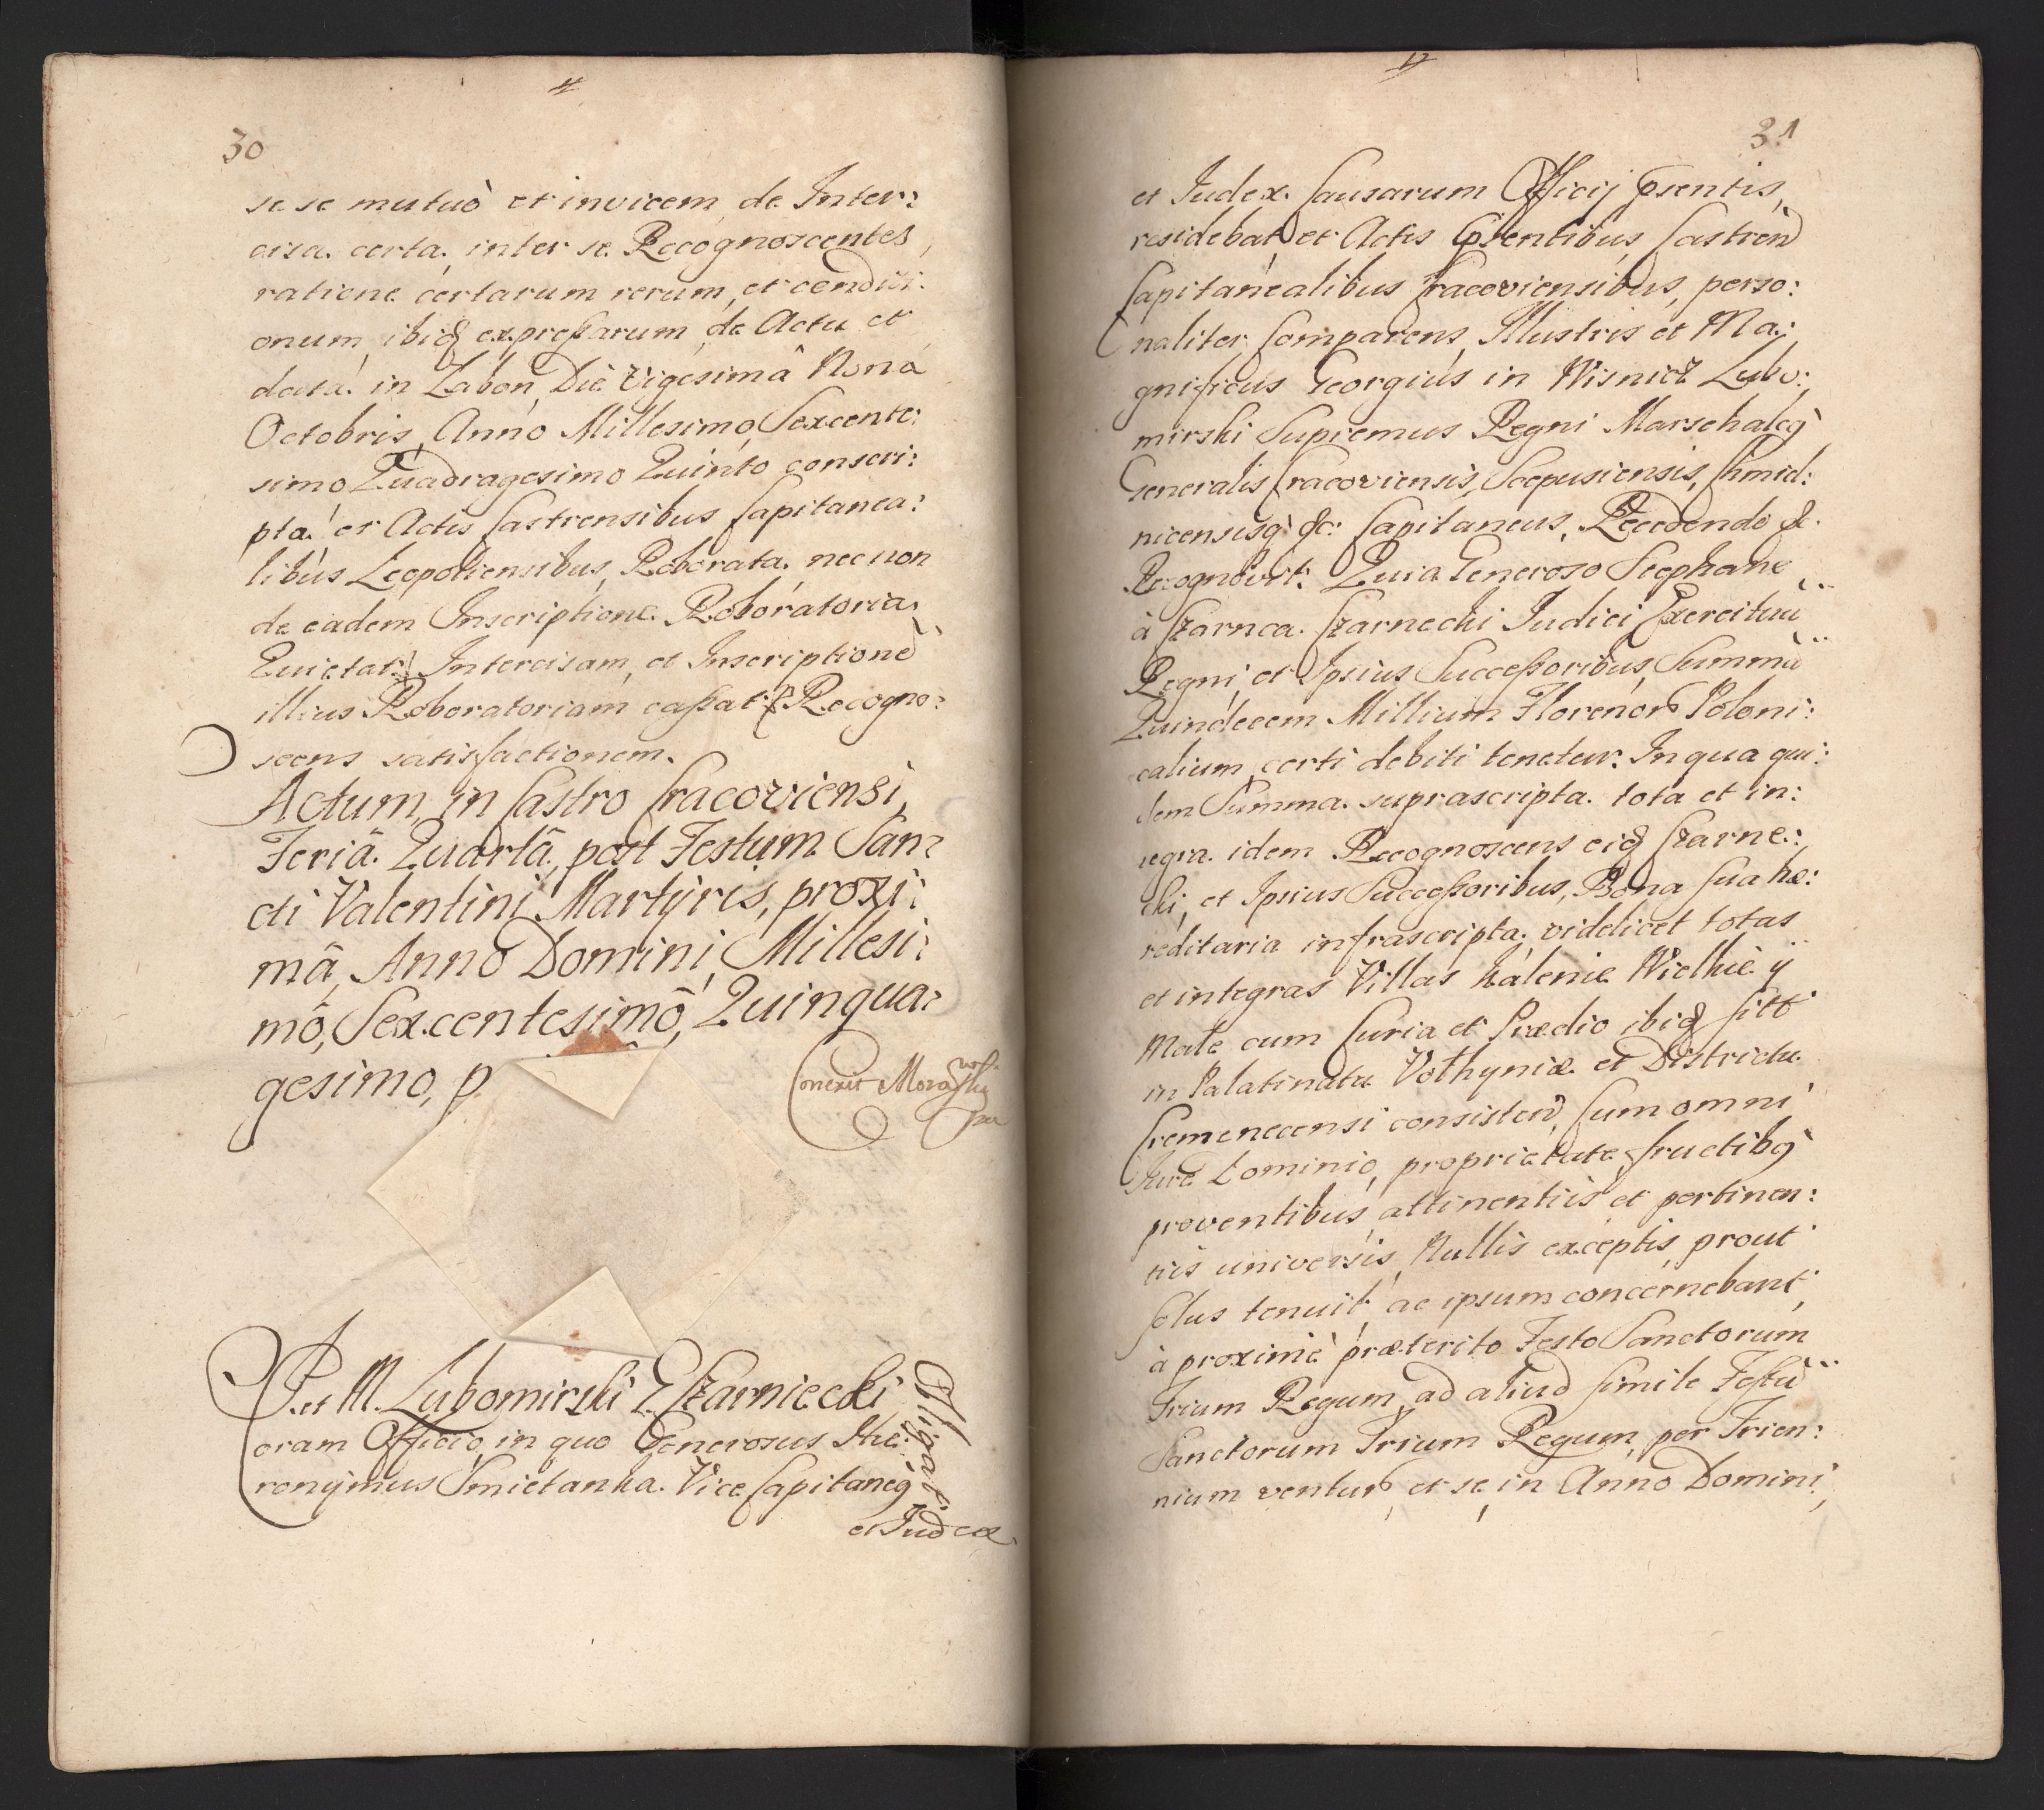 30
se se mutuò et invicem de Inter:
cisa certa inter se Recognoscentes,
ratione certarum rerum, et conditi:
onum ibiq expressarum, de Actu et
data in Zabon, Die Vigesimâ Nona
Octobris, Anno Millesimo Sexcente:
simo Quadragesimo Quinto conscri:
pta et Actis Castrensibus Capitanea:
libus Leopoliensibus, Roborata, nec non
de eadem Inscriptione Roboratoria
Quietat: Intercisam, et Inscriptionē
illius Roboratoriam cassat: Recogno:
scens satisfactionem.
Actum in Castro Cracoviensi,
Feriâ Quartâ, post Festum San:
cti Valentini Martÿris, proxi:
mâ, Anno Domini Millesi:
mô, Sexcentesimô, Quinqua:
gesimo, p
Conexit
J. et M. Lubomirski G. Czarniecki
Obligat:
oram Officio, in quo Generosus Hie:
ronÿmus Smietanka Vice Capitaneq
et Judex
31
et Judex Causarum Officij Pñentis,
residebat, et Actis Pñentibus, Castreñ
Capitanealibus Cracoviensibus, perso:
naliter Comparens, Illustris et Ma:
gnificus Georgius in Wisnicz Lubo:
mirski Supremus Regni Marschalcq
Generalis Cracoviensis, Scepusiensis, Chmiel:
nicensisq &c: Capitaneus, Recedendo &.
Recognovit: Quia Generoso Stephano
à Czarnca Czarnecki Judici Exercituū
Regni, et Ipsius Successoribus, Summā
Quindecem Millium Florenor Poloni:
calium certi debiti tenetur: In qua qui:
dem Summa suprascripta tota et in:
tegra idem Recognoscens eiq Czarne:
cki, et Ipsius Successoribus, Bona sua hæ:
reditaria infrascripta videlicet totas
et integras Villas Kalenie Wielkie ÿ
Małe cum Curia et Prædio ibiq sitt
in Palatinatu Volhyniæ et Districtu
Cremenecensi consisteñ, Cum omni
Jure Dominio, proprietate, fructibq
proventibus attinentiis et pertinen:
tiis universis, Nullis exceptis, prout
solus tenuit, ac ipsum concernebant,
à proximè præterito Festo Sanctorum
Trium Regum, ad aliud simile Festū
Sanctorum Trium Regum, per Trien:
nium ventur, et se, in Anno Domini,